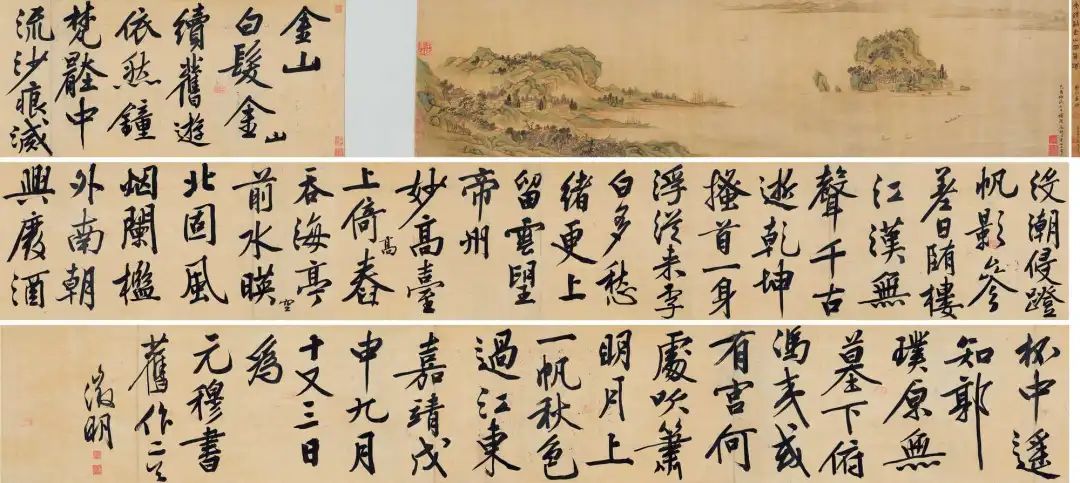 金山
白髮金山
續舊遊
依然鐘
梵罄中
流沙痕減
沒潮侵蹬
帆影參
差日隋樓
江漢無
聲千古
逝乾坤
搔首一身
浮從来李
白多愁
緒更上
留雲望
帝州
妙高臺
上倚高舂
吞海亭
前水暎空
北固風
烟闌檻
外南朝
興廢酒
杯中遙
知郭
璞原無
墓下俯
馮夷或
有宫何
處吹簫
明月上
一帆秋色
過江東
嘉靖戊
申九月
十又三日
為
元穆書
舊作二首
徵明